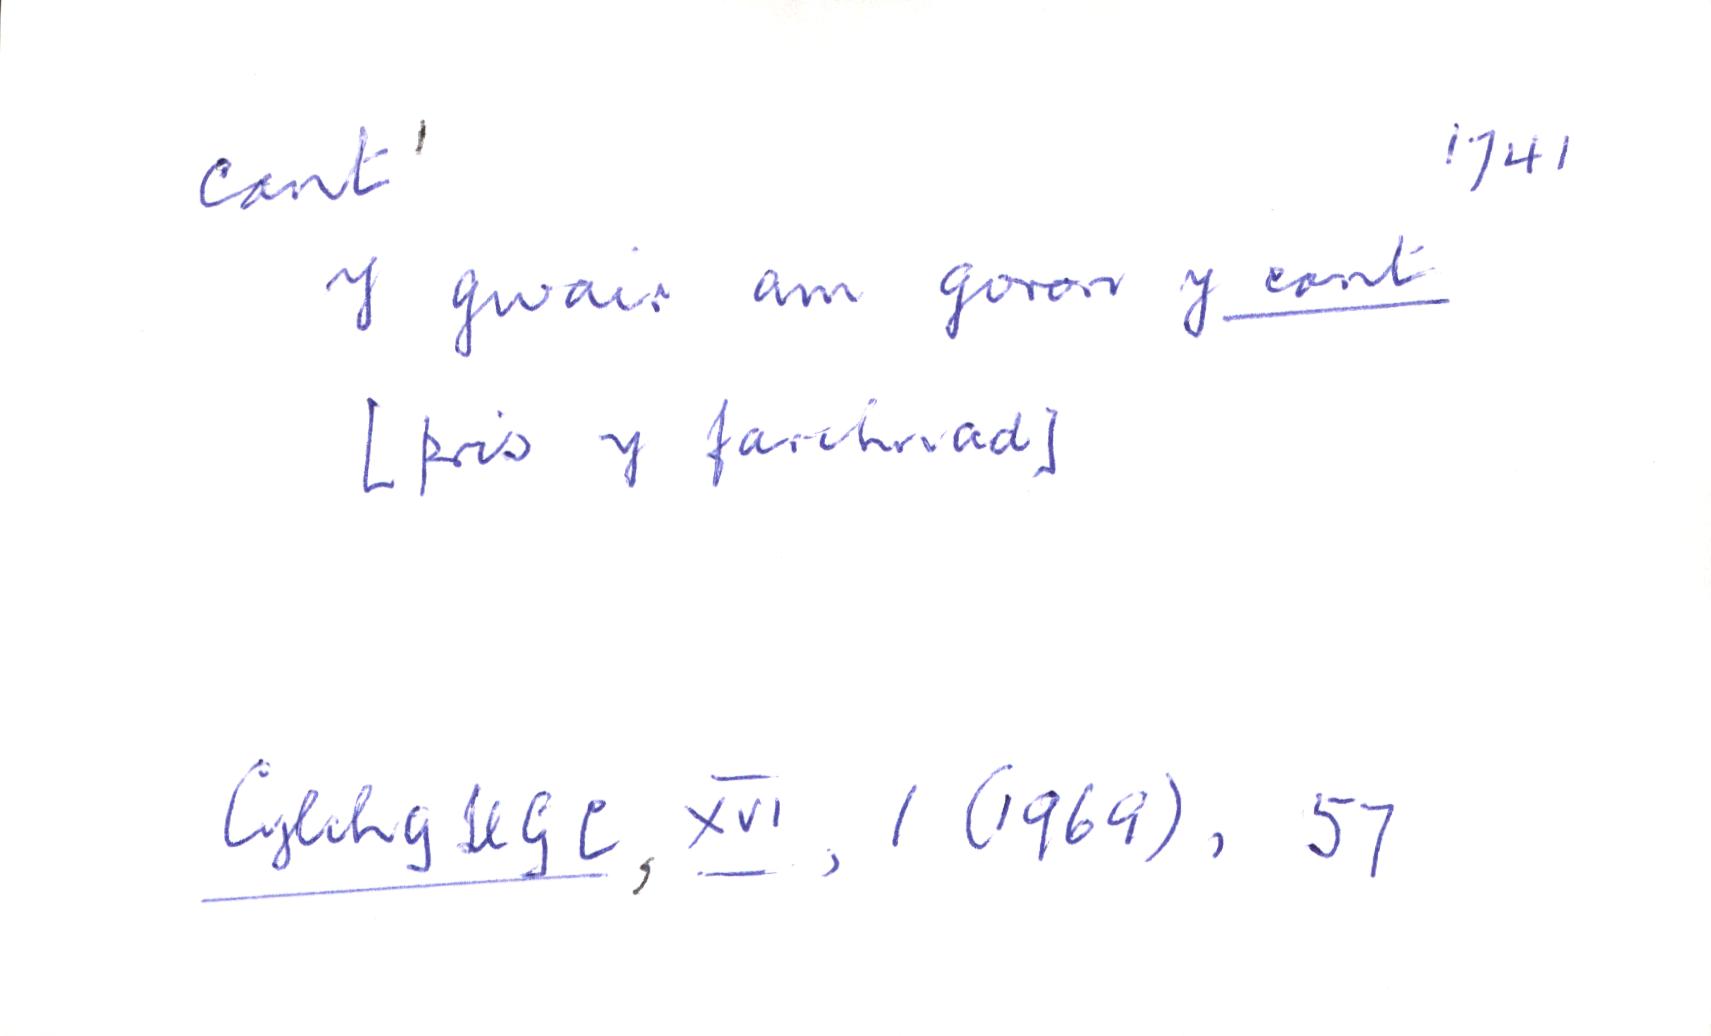 cant¹ 1741
y gwair am goron y cant
[pris y farchnad]
Cylchg LlGC, XVI, 1 (1969), 57